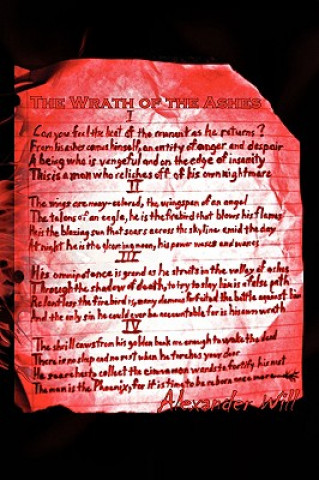 The Wrath of the Ashes
I
Can you feel the heat of the moment as he returns?
From his ashes comes himself, an entity of anger and despair
A being who is vengeful and on the edge of insanity
This is a man who relishes off of his own nightmare
II
The wings are many-colored, the wingspan of an angel
The talons of an eagle, he is the firebird that blows his flames
He is the blazing sun that soars across the skyline amid the day
At night he is the gleaming moon, his power waxes and wanes
III
His omnipotence is grand as he struts in the valley of ashes
Through the shadow of death, to try to slay him is a false path
Relentless the firebird is, many demons forfeited the battle against him
And the only sin he could ever be accountable for is his own wrath
IV
The shrill caws from his golden beak are enough to wake the dead
There is no sleep and no rest when he torches your door
He searches to collect the cinnamon wands to fortify his nest
The man is the Phoenix, for it is time to be reborn once more
Alexander Will